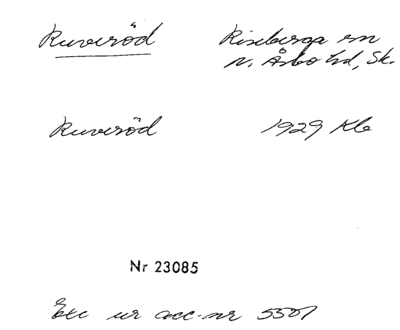 Ruveröd Riseberga sn
N. Åsbo hd, Sk.
Ruveröd 1929 Kb
Nr 23085
Exc ur acc-nr 5501